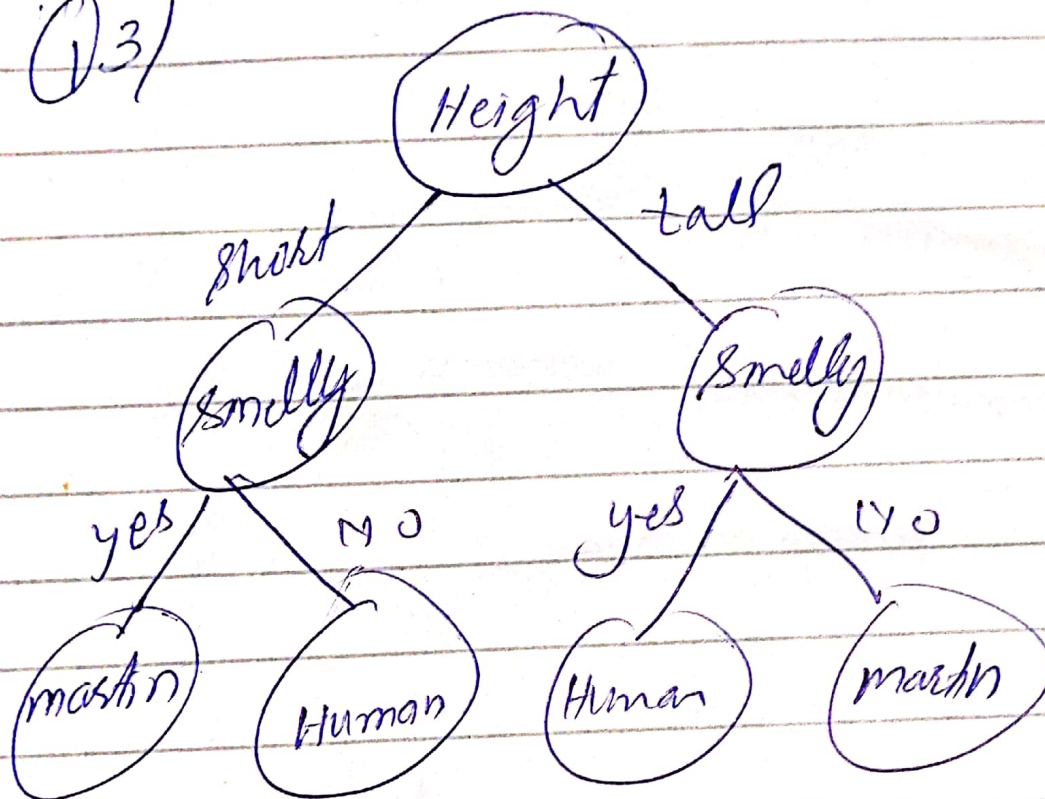 1.3)
Height
short tall
smelly smelly
yes NO yes NO
martin Human Human martin